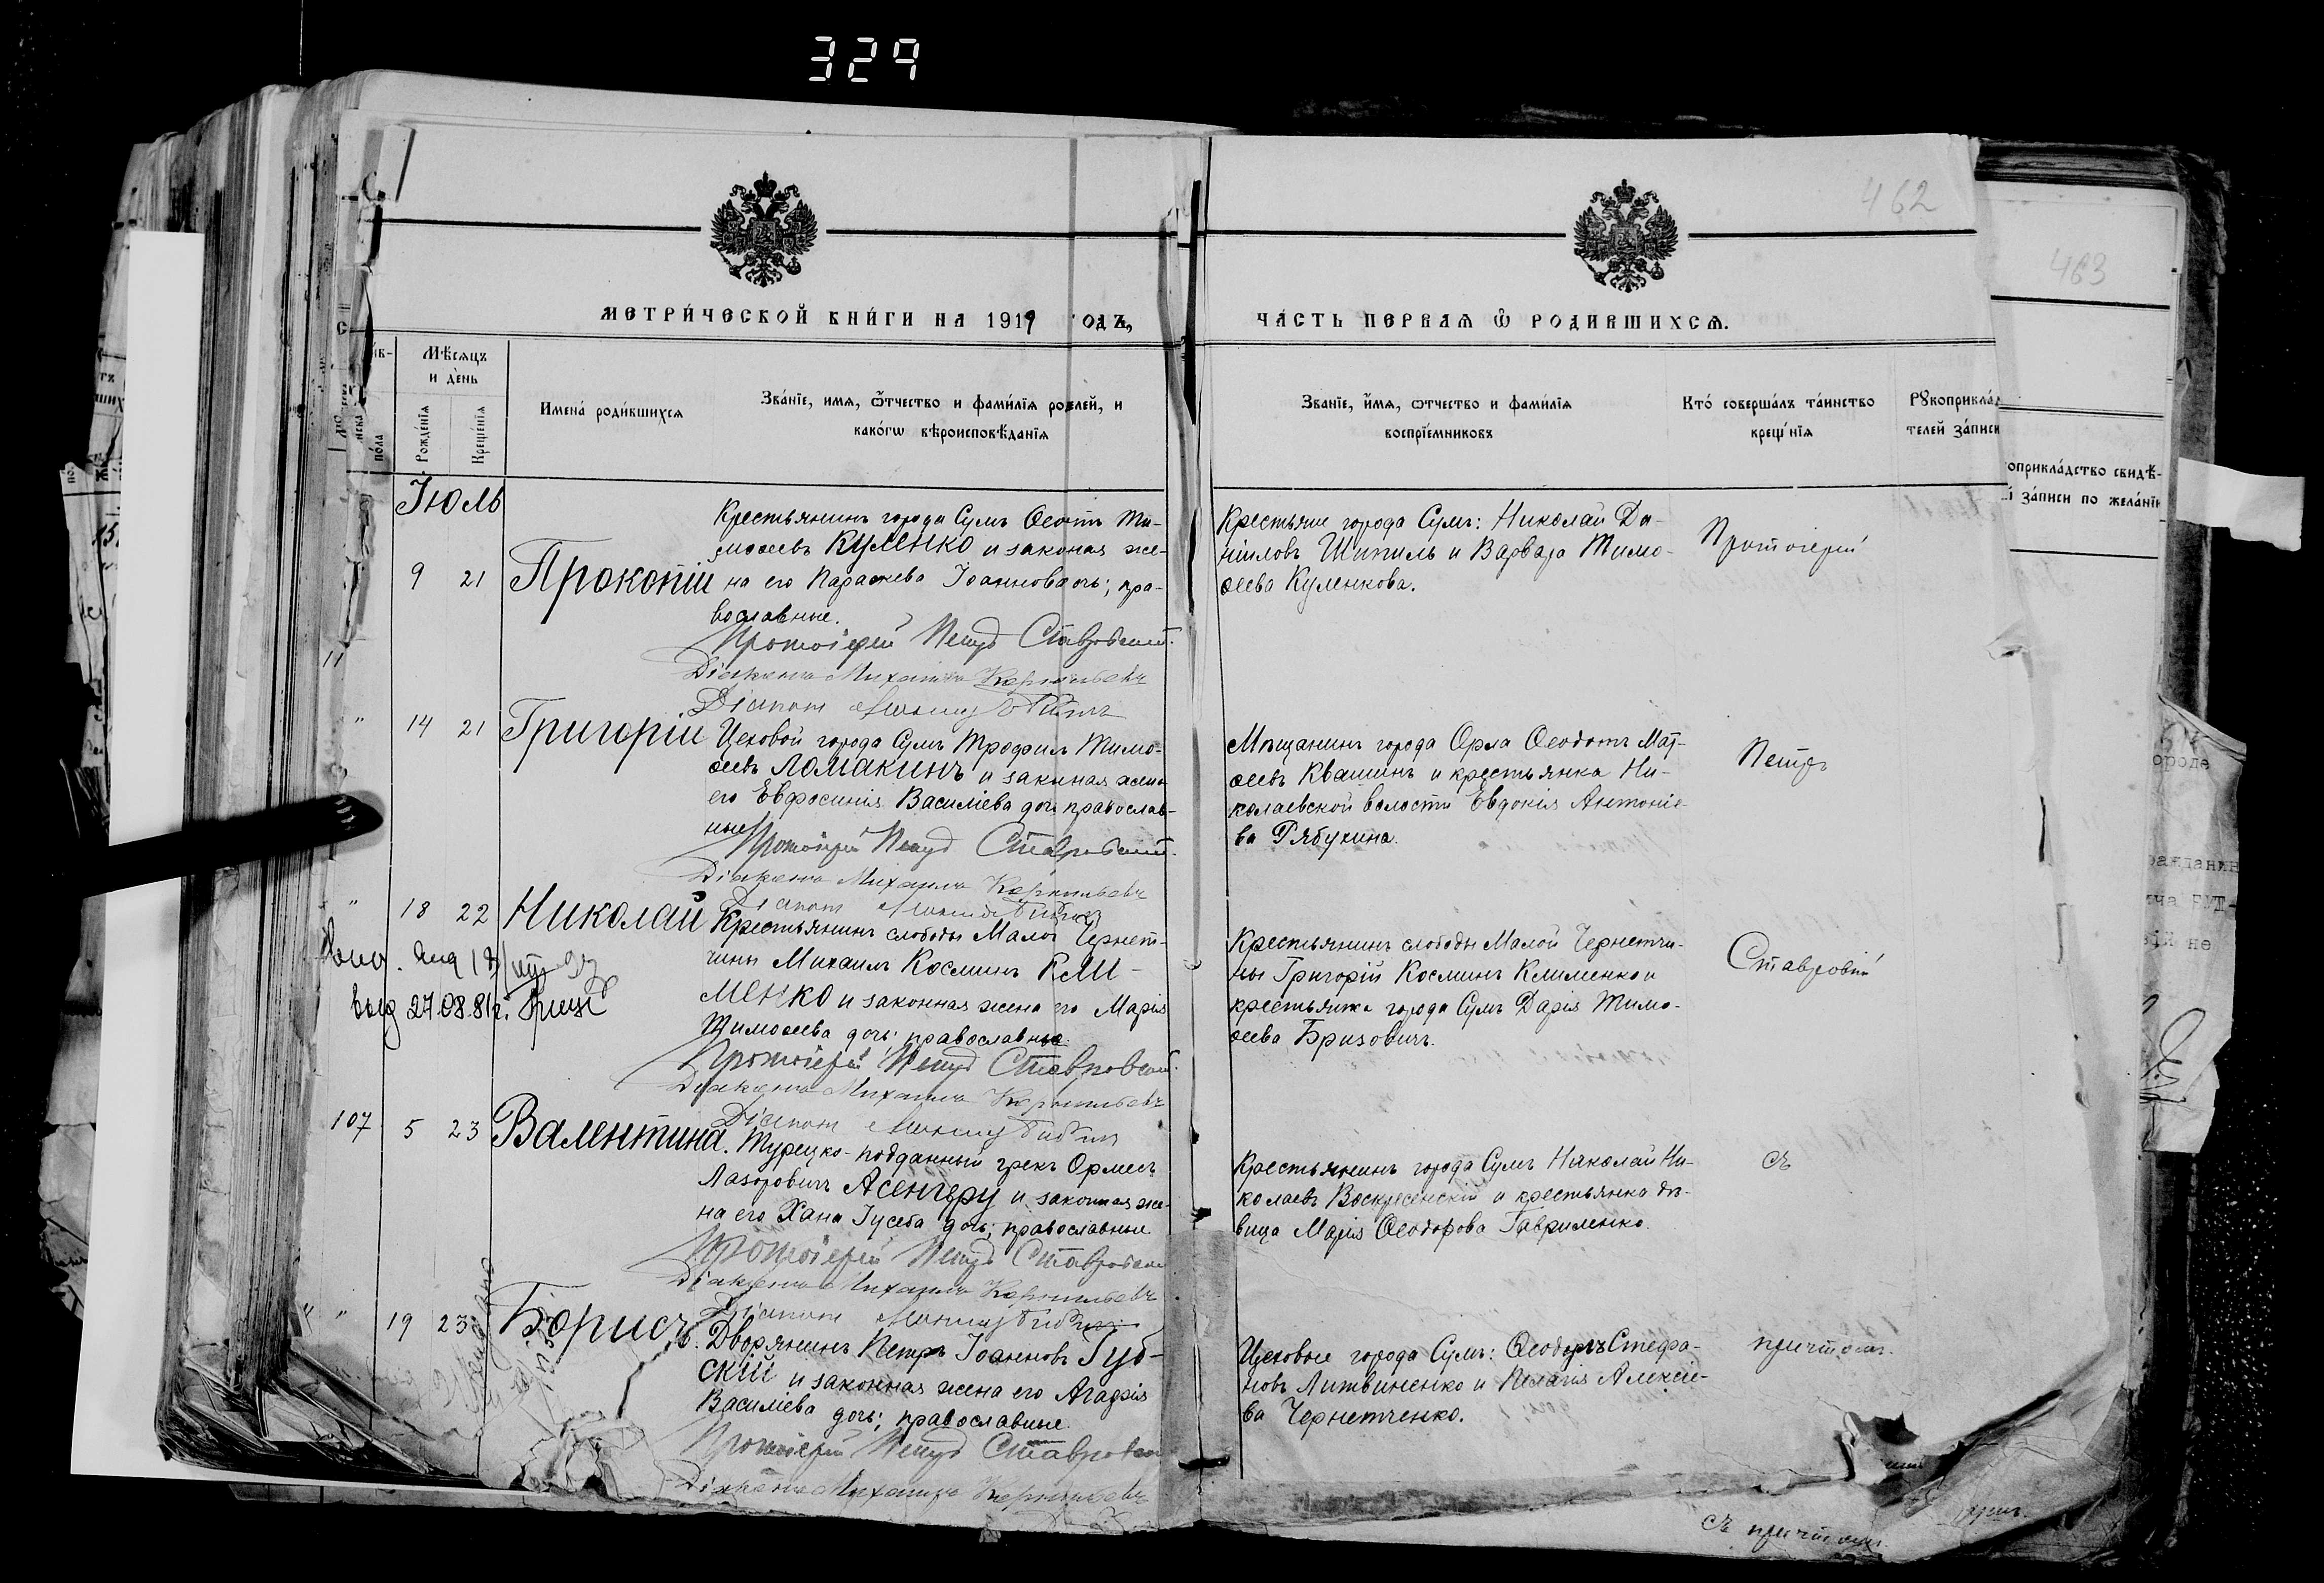 329
462
463
МЕТРИ́ЧЕСКОЙ КНИ́ГИ НА 1919 ГОДЪ,
ЧА́СТЬ ПЕРВАѦ Ѡ҆ РОДИ́ВШИХСѦ.
Мѣ́сѧцъ
и де́нь
Рожде́нїѧ
Креще́нїѧ
по́ла
Имена́ роди́вшихсѧ
Зва́нїе, имѧ, ѻтчество и фами́лїѧ роди́телей, и
како́гѡ вѣроисповѣ́данїѧ
Зва́нїе, и́мѧ, ѻтчество и фами́лїѧ
воспрїе́мниковъ
Кто́ соверша́лъ та́инство
креще́нїѧ
Рꙋкоприкла́д
телей за́писи
оприкла́дство свидѣ́-
за́писи по жела́нїю
Іюль
9 21 Прокопій
Крестьянинъ города Сумъ Ѳеоктистъ Ти-
моѳеевъ Куленко и законая же-
на его Параскева Іоанновa дочь; пра-
вославные.
Протоіерей Петръ Ставровскій.
Діаконъ Михаилъ Корнильевъ
Крестьяне города Сумъ: Николай Да-
ніиловъ Шипиль и Варвара Тимо-
ѳеева Куленкова.
Протоіерей
" 14 21 Григорій
Цеховой города Сумъ Трофимъ Тимо-
ѳеевъ Ломакинъ и законая жена
его Евфросинія Василіева дочь православ-
ные
Протоіерей Петръ Ставровскій.
Діаконъ Михаилъ Корнильевъ
Мѣщанинъ города Орла Ѳеодотъ Мат-
ѳеевъ Квашинъ и крестьянка Ни-
колаевской волости Евдокія Антоніе-
ва Рябухина.
Петръ
" 18 22 Николай
Крестьянинъ слободы Малой Чернет-
чины Михаилъ Косминъ Кли-
менко и законная жена его Марія
Тимоѳеева дочь; православные.
Протоіерей Петръ Ставровскій.
Діаконъ Михаилъ Корнильевъ
Крестьянинъ слободы Малой Чернетчи-
ны Григорій Косминъ Клименко и
крестьянка города Сумъ Дарія Тимо-
ѳеева Бризовичъ.
Ставровскій
выд 27.08.81г.
107 5 23 Валентина.
Турецко-подданный грекъ Ормесъ
Лазоровичъ Асенгеру и законная же-
на его Хана Іусефа дочь; православные
Протоіерей Петръ Ставровскій
Діаконъ Михаилъ Корнильевъ
Крестьянинъ города Сумъ Николай Ни-
колаевъ Воскресенскій и крестьянка дѣ-
вица Марія Ѳеодорова Гавриленко.
съ
" " 19 23 Борисъ.
Дворянинъ Петръ Іоанновъ Губ-
скій и законная жена его Агафія
Василіева дочь; православные.
Протоіерей Петръ Ставровскій
Діаконъ Михаилъ Корнильевъ
Цеховые города Сумъ: Ѳеодоръ Стефа-
новъ Литвиненко и Пелагія Алексіе-
ва Чернетченко.
причтомъ.
съ причтомъ.
ороде
ражданин
не